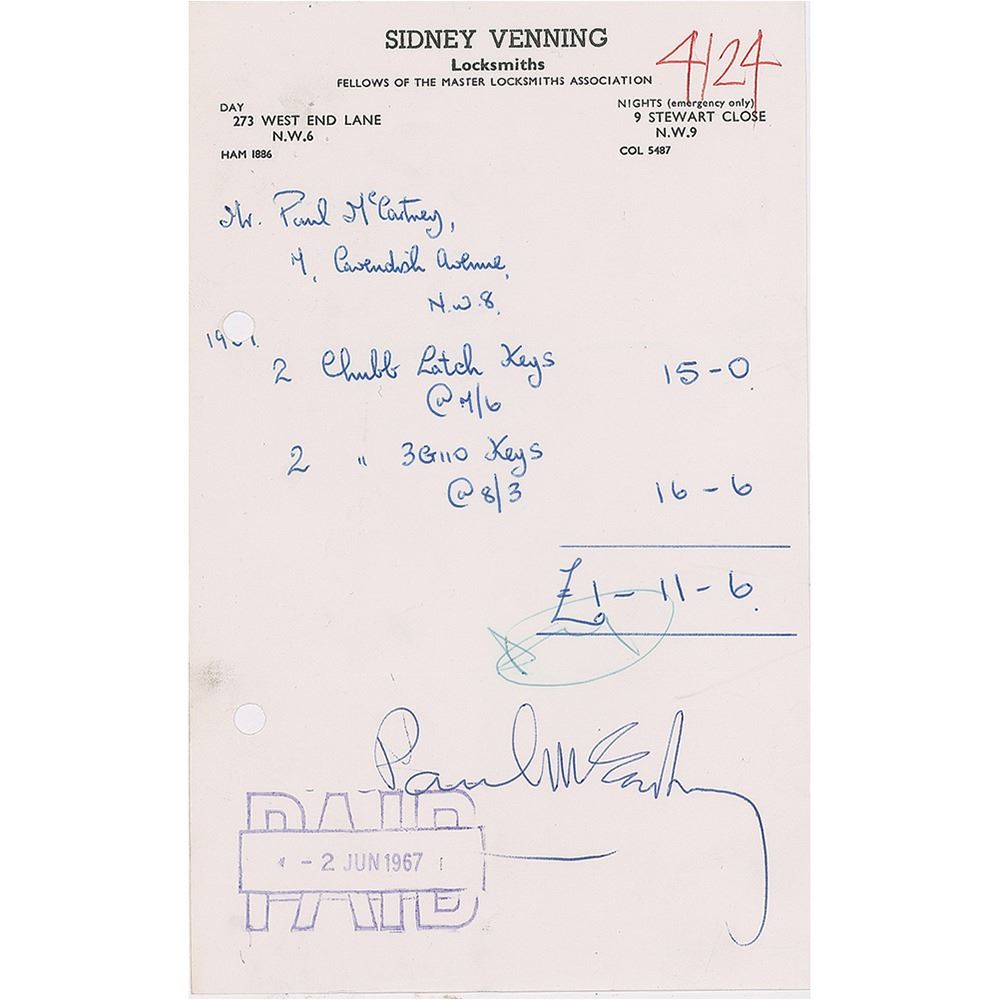 SIDNEY VENNING
4124
Locksmiths
FELLOWS OF THE MASTER LOCKSMITHS ASSOCIATION
DAY
273 WEST END LANE
N.W.6
HAM 1886
NIGHTS (emergency only)
9 STEWART CLOSE
N.W.9
COL 5487
Mr. Paul McCartney,
7, Cavendish Avenue,
N.W.8.
2 Chubb Latch Keys 15-0
@ 7/6
2 " 3G110 Keys
@ 8/3 16-6
£1-11-6.
Paul McCartney
PAID
-2 JUN 1967